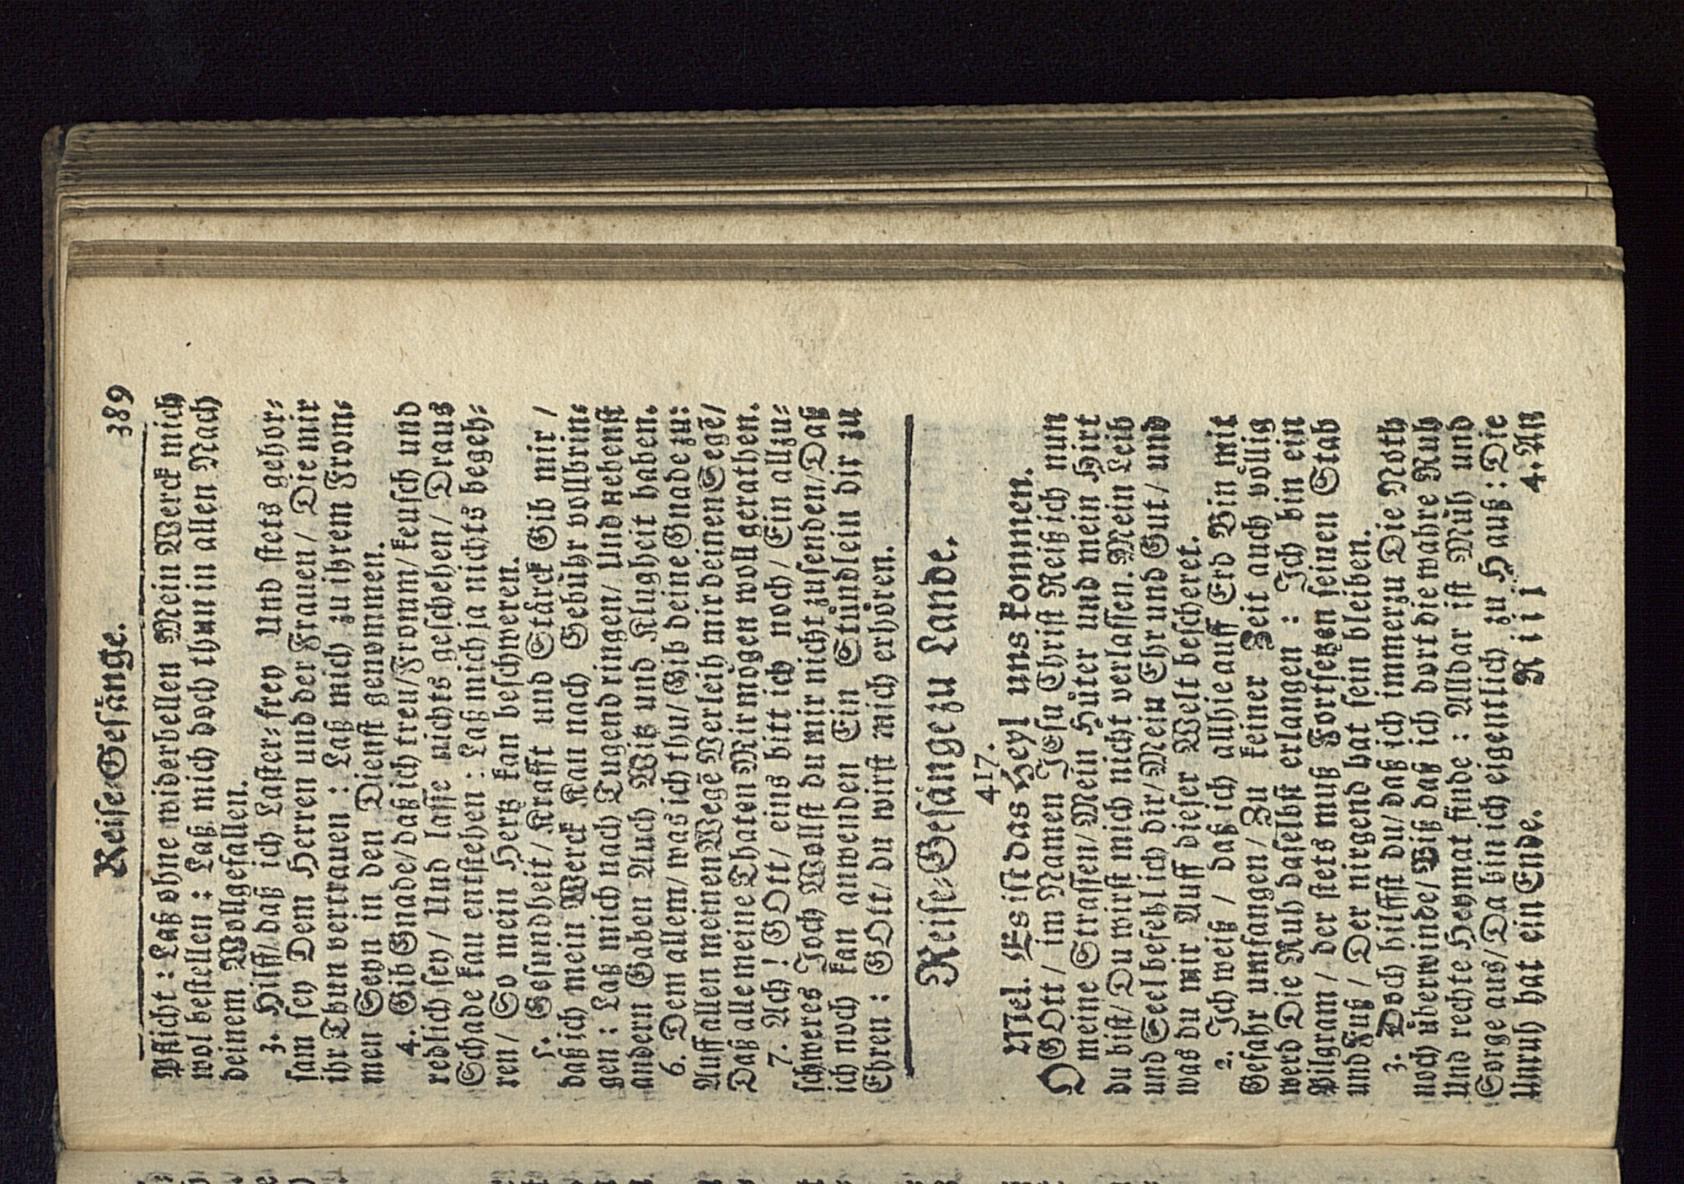 Reise-Gesänge. 389
Pflicht : Laß ohne widerbellen Mein Werck mich
wol bestellen : Laß mich doch thun in allen Nach
deinem Wollgefallen.
3. Hilff/ daß ich Laster-frey Und stets gehor-
sam sey Dem Herren und der Frauen/ Die mir
ihr Thun vertrauen : Laß mich zu ihrem From-
men Seyn in den Dienst genommen.
4. Gib Gnade/ daß ich treu/ Fromm/ keusch und
redlich sey/ Und lasse nichts geschehen/ Draus
Schade kan entstehen : Laß mich ja nichts begeh-
ren/ So mein Hertz kan beschweren.
5. Gesundheit/ Krafft und Stärck Gib mir /
daß ich mein Werck Kan nach Gebühr vollbrin-
gen : Laß mich nach Tugend ringen/ Und nebenst
andern Gaben Auch Witz und Klugheit haben.
6. Dem allem/ was ich thu/ Gib deine Gnade zu:
Auff allen meinen Wegē Verleih mir deinen Sege/
Daß alle meine Thaten Mir mögen woll gerathen.
7. Ach ! GOtt/ eins bitt ich noch/ Ein allzu-
schweres Joch Wollst du mir nicht zusenden/ Daß
ich noch kan anwenden Ein Stündlein dir zu
Ehren : GOtt/ du wirst mich erhören.
Reise-Gesänge zu Lande.
417.
Mel. Es ist das Heyl uns kommen.
O GOtt/ im Namen JEsu Christ Reiß ich nun
meine Strassen/ Mein Hüter und mein Hirt
du bist/ Du wirst mich nicht verlassen. Mein Leib
und Seel befehl ich dir/ Mein Ehr und Gut/ und
was du mir Auff dieser Welt bescheret.
2. Ich weiß / daß ich alhie auff Erd Bin mit
Gefahr umfangen/ Zu keiner Zeit auch völlig
werd Die Ruh daselbst erlangen : Ich bin ein
Pilgram / der stets muß Fortsetzen seinen Stab
und Fuß/ Der nirgend hat sein bleiben.
3. Doch hilffst du/ daß ich immerzu Die Noth
noch überwinde/ Biß daß ich dort die wahre Ruh
Und rechte Heymat finde : Alldar ist Müh und
Sorge aus/ Da bin ich eigentlich zu Hauß : Die
Unruh hat ein Ende.
4. An